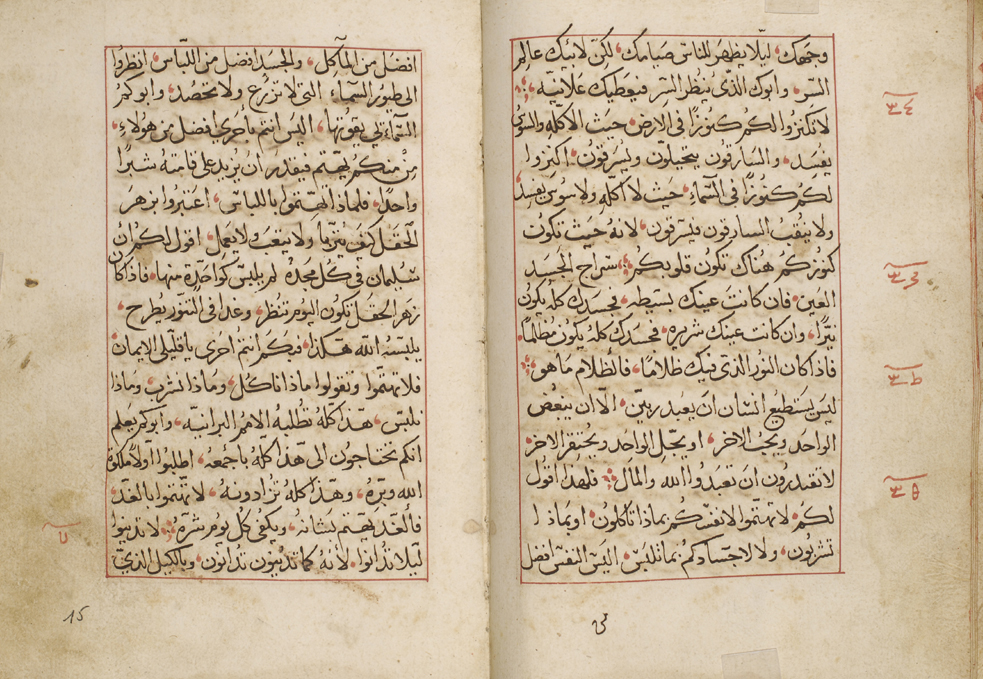 وجهك ليلا يظهر للناس صيامك لكن لابيك عالم
السر وابوك الذي ينظر السر فيعطيك علانيه
لا تكنزوا لكم كنوزا في الارض حيث الاكله والسوس
يفسد والسارقون يتحيلون ويسرقون اكنزوا
لكم كنوزا في السماء حيث لا اكله ولا سوس يفسد
ولا ينقب السارقون فيسرقون لانه حيث تكون
كنوزكم هناك تكون قلوبكم سراج الجسد
العين فان كانت عينك بسيطه فجسدك كله يكون
نيرا وان كانت عينك شريره فجسدك كله يكون مظلما
فاذا كان النور الذي فيك ظلاما فالظلام ما هو
ليس يستطيع انسان ان يعبد ربين الا ان يبغض
الواحد ويحب الاخر او يجل الواحد ويحتقر الاخر
لا تقدرون ان تعبدوا الله والمال فلهذا اقول
لكم لا تهتموا لانفسكم بماذا تاكلون او بماذا
تشربون ولا لاجسادكم بما تلبس اليس النفس افضل
افضل من المآكل والجسد افضل من اللباس انظروا
الى طيور السماء التي لا تزرع ولا تحصد وابوكم
السمآءي يقوتها اليس انتم باحرى افضل من هولاء
من منكم يهتم فيقدر ان يزيد على قامته شبرا
واحدا فلماذا تهتموا باللباس اعتبروا بزهر
الحقل كيف يتربا ولا يتعب ولا يعمل اقول لكم ان
سليمان في كل مجده لم يلبس كواحدة منها فاذا كا
زهر الحقل تكون اليوم تنظر وغدا في التنور يطرح
يلبسه الله هكذا فبكم انتم احرى يا قليلي الايمان
فلا تهتموا وتقولوا ماذا ناكل وماذا نشرب وماذا
نلبس هذا كله تطلبه الامم البرانيه وابوكم يعلم
انكم تحتاجون الى هذا كله باجمعه اطلبوا اولا ملكوة
الله وبره وهذا كله تزادونه لا تهتموا بالغد
فالغد يهتم بشانه ويكفي كل يوم شره لا تدينوا
ليلا تدانوا لانه كما تدينون تدانون وبالكيل الذي
15